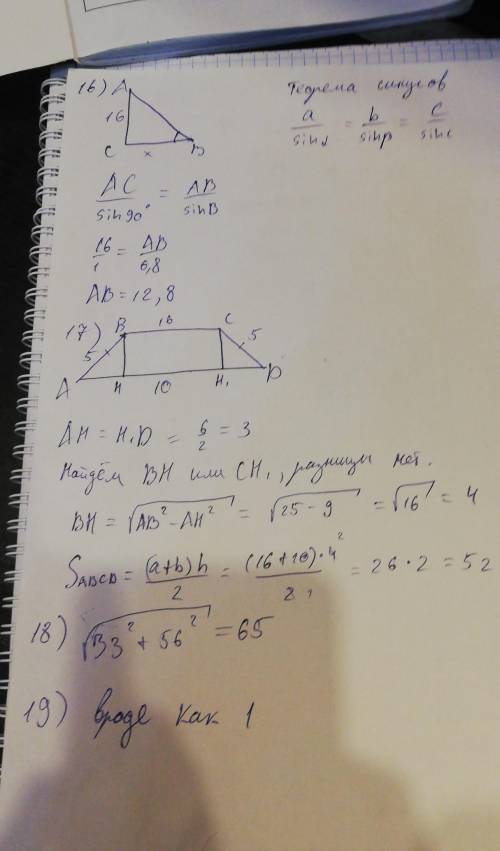 16) A
16
C x B
Теорема синусов
a/sinα = b/sinβ = c/sinc
AC/sin90° = AB/sinB
16/1 = AB/0,8
AB = 12,8
17) B 16 C
5 5
A H 10 H₁ D
AH = H₁D = 6/2 = 3
Найдём BH или CH₁, разницы нет.
BH = √AB² - AH² = √25 - 9 = √16 = 4
SABCD = (a+b)h/2 = (16+10)·4²/2₁ = 26·2 = 52
18) √33² + 56² = 65
19) вроде как 1